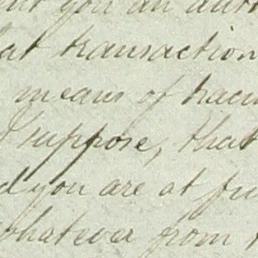 you an auth
at transaction
means of pacif
I suppose, that
d you are at fu
whatever from t